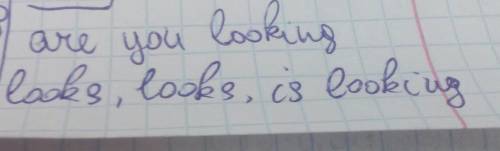 are you looking
looks, looks, is looking